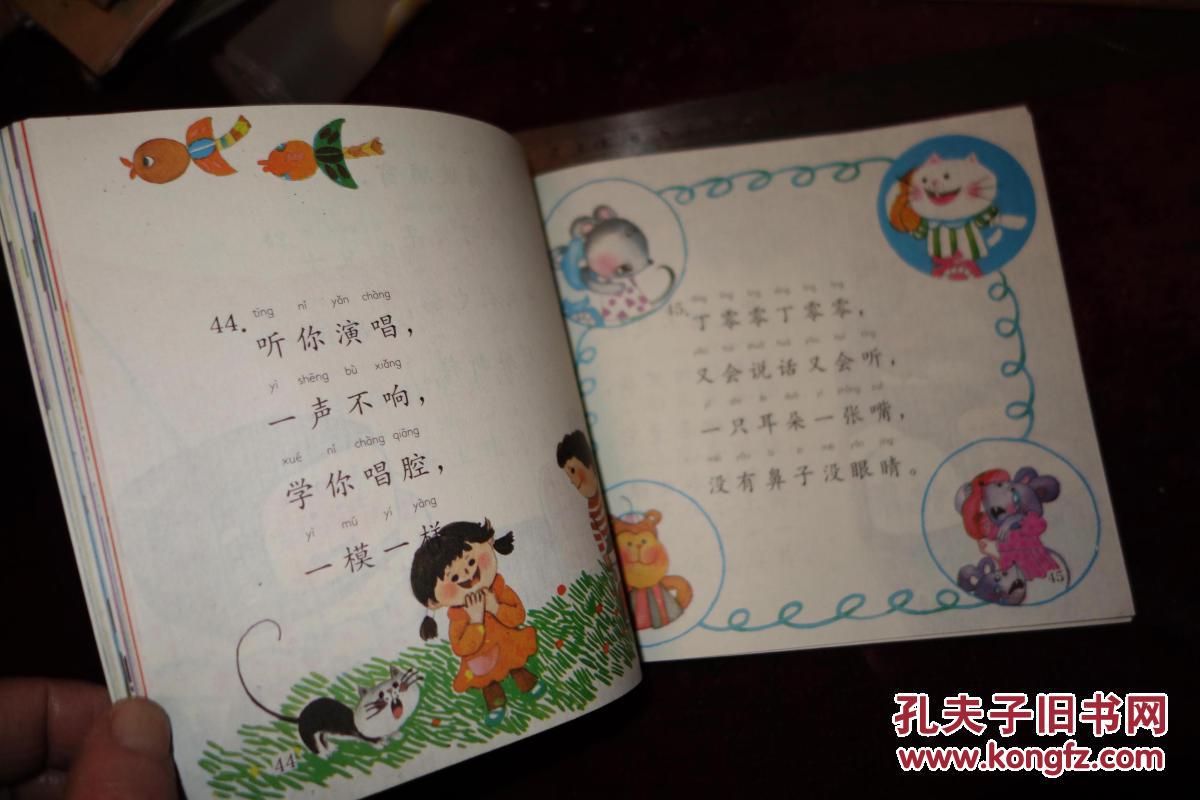 tīng nǐ yǎn chàng
44. 听你演唱，
yì shēng bù xiǎng
一声不响，
xué nǐ chàng qiāng
学你唱腔，
yì mú yí yàng
一模一样
44
45. 丁零零丁零零，
又会说话又会听，
一只耳朵一张嘴，
没有鼻子没眼睛。
45
孔夫子旧书网
www.kongfz.com